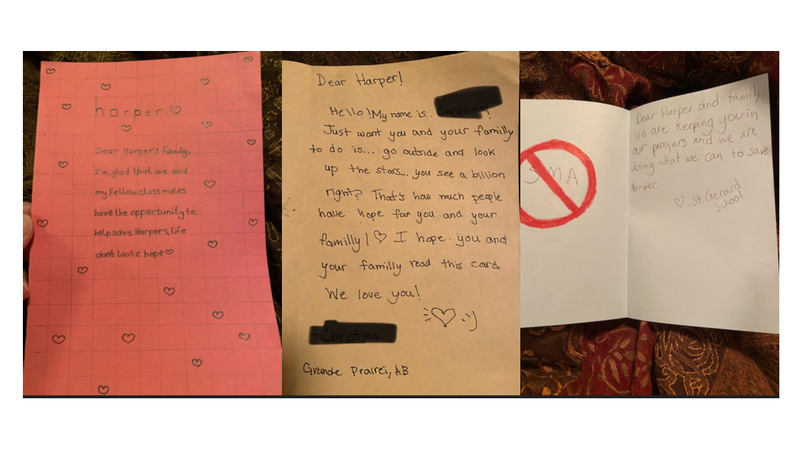 harper
Dear Harper's Family,
I'm glad that me and
my Fellow classmates
have the opportunity to,
help save Harpers, life
dont loose hope
Dear Harper!
Hello! My name is..
Just want you and your familly
to do is... go outside and look
up the stars... you see a billion
right? That's how much people
have hope for you and your
familly! I hope you and
your familly read this card
We love you!
:)
Grande Prairei, AB
SMA
Dear Harper and family,
We are Keeping you in
our prayers and we are
doing what we can to save
Harper
-St. Gerard
School